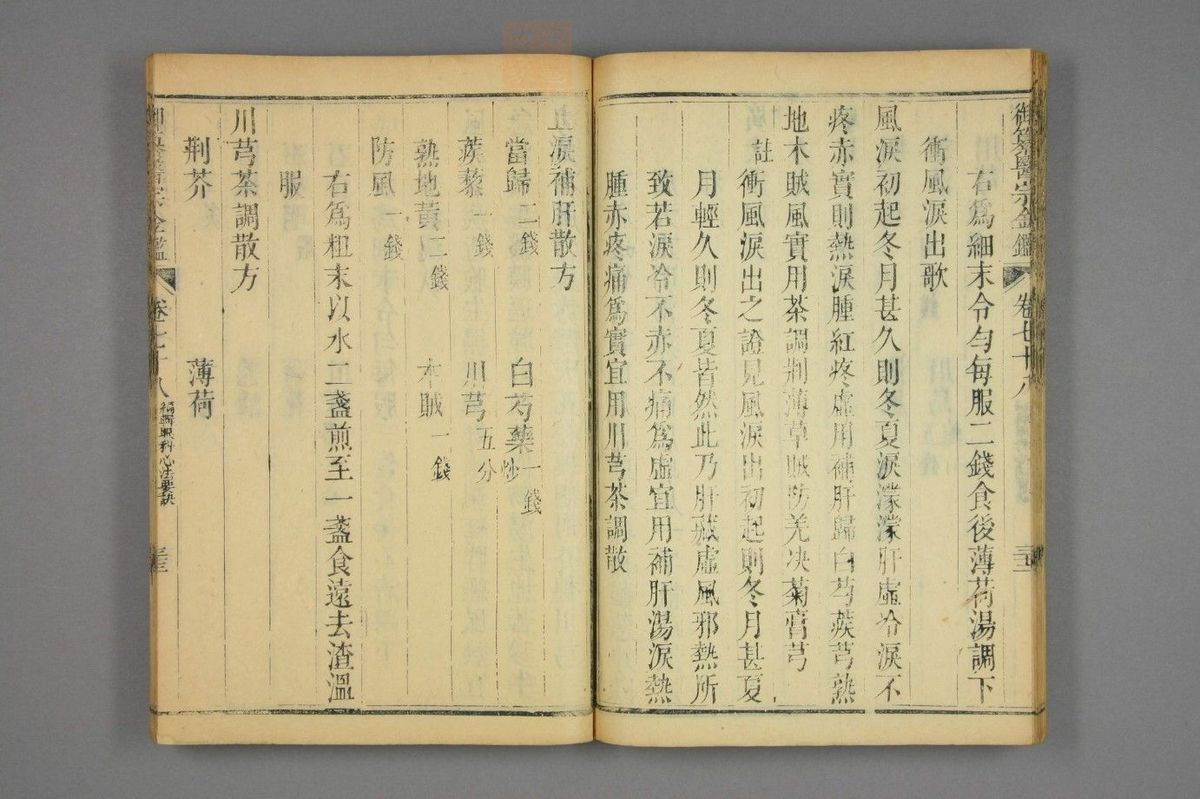 御纂醫宗金鑑 卷七十八
右爲細末令勻每服二錢食後薄荷湯調下
衝風淚出歌
風淚初起冬月甚久則冬夏淚濛濛肝虛冷淚不
疼赤實則熱淚腫紅疼虛用補肝歸白芍蒺芎熟
地木賊風實用茶調荆薄草賊防羌决菊膏芎
註衝風淚出之證見風淚出初起則冬月甚夏
月輕久則冬夏皆然此乃肝藏虛風邪熱所
致若淚冷不赤不痛爲虛宜用補肝湯淚熱
腫赤疼痛爲實宜用川芎茶調散
止淚補肝散方
當歸二錢 白芍藥炒一錢
蒺藜一錢 川芎五分
熟地黃二錢 木賊一錢
防風一錢
右爲粗末以水二盞煎至一盞食遠去渣溫
服
川芎茶調散方
荆芥 薄荷
御纂醫宗金鑑 卷七十八 編輯眼科心法要訣